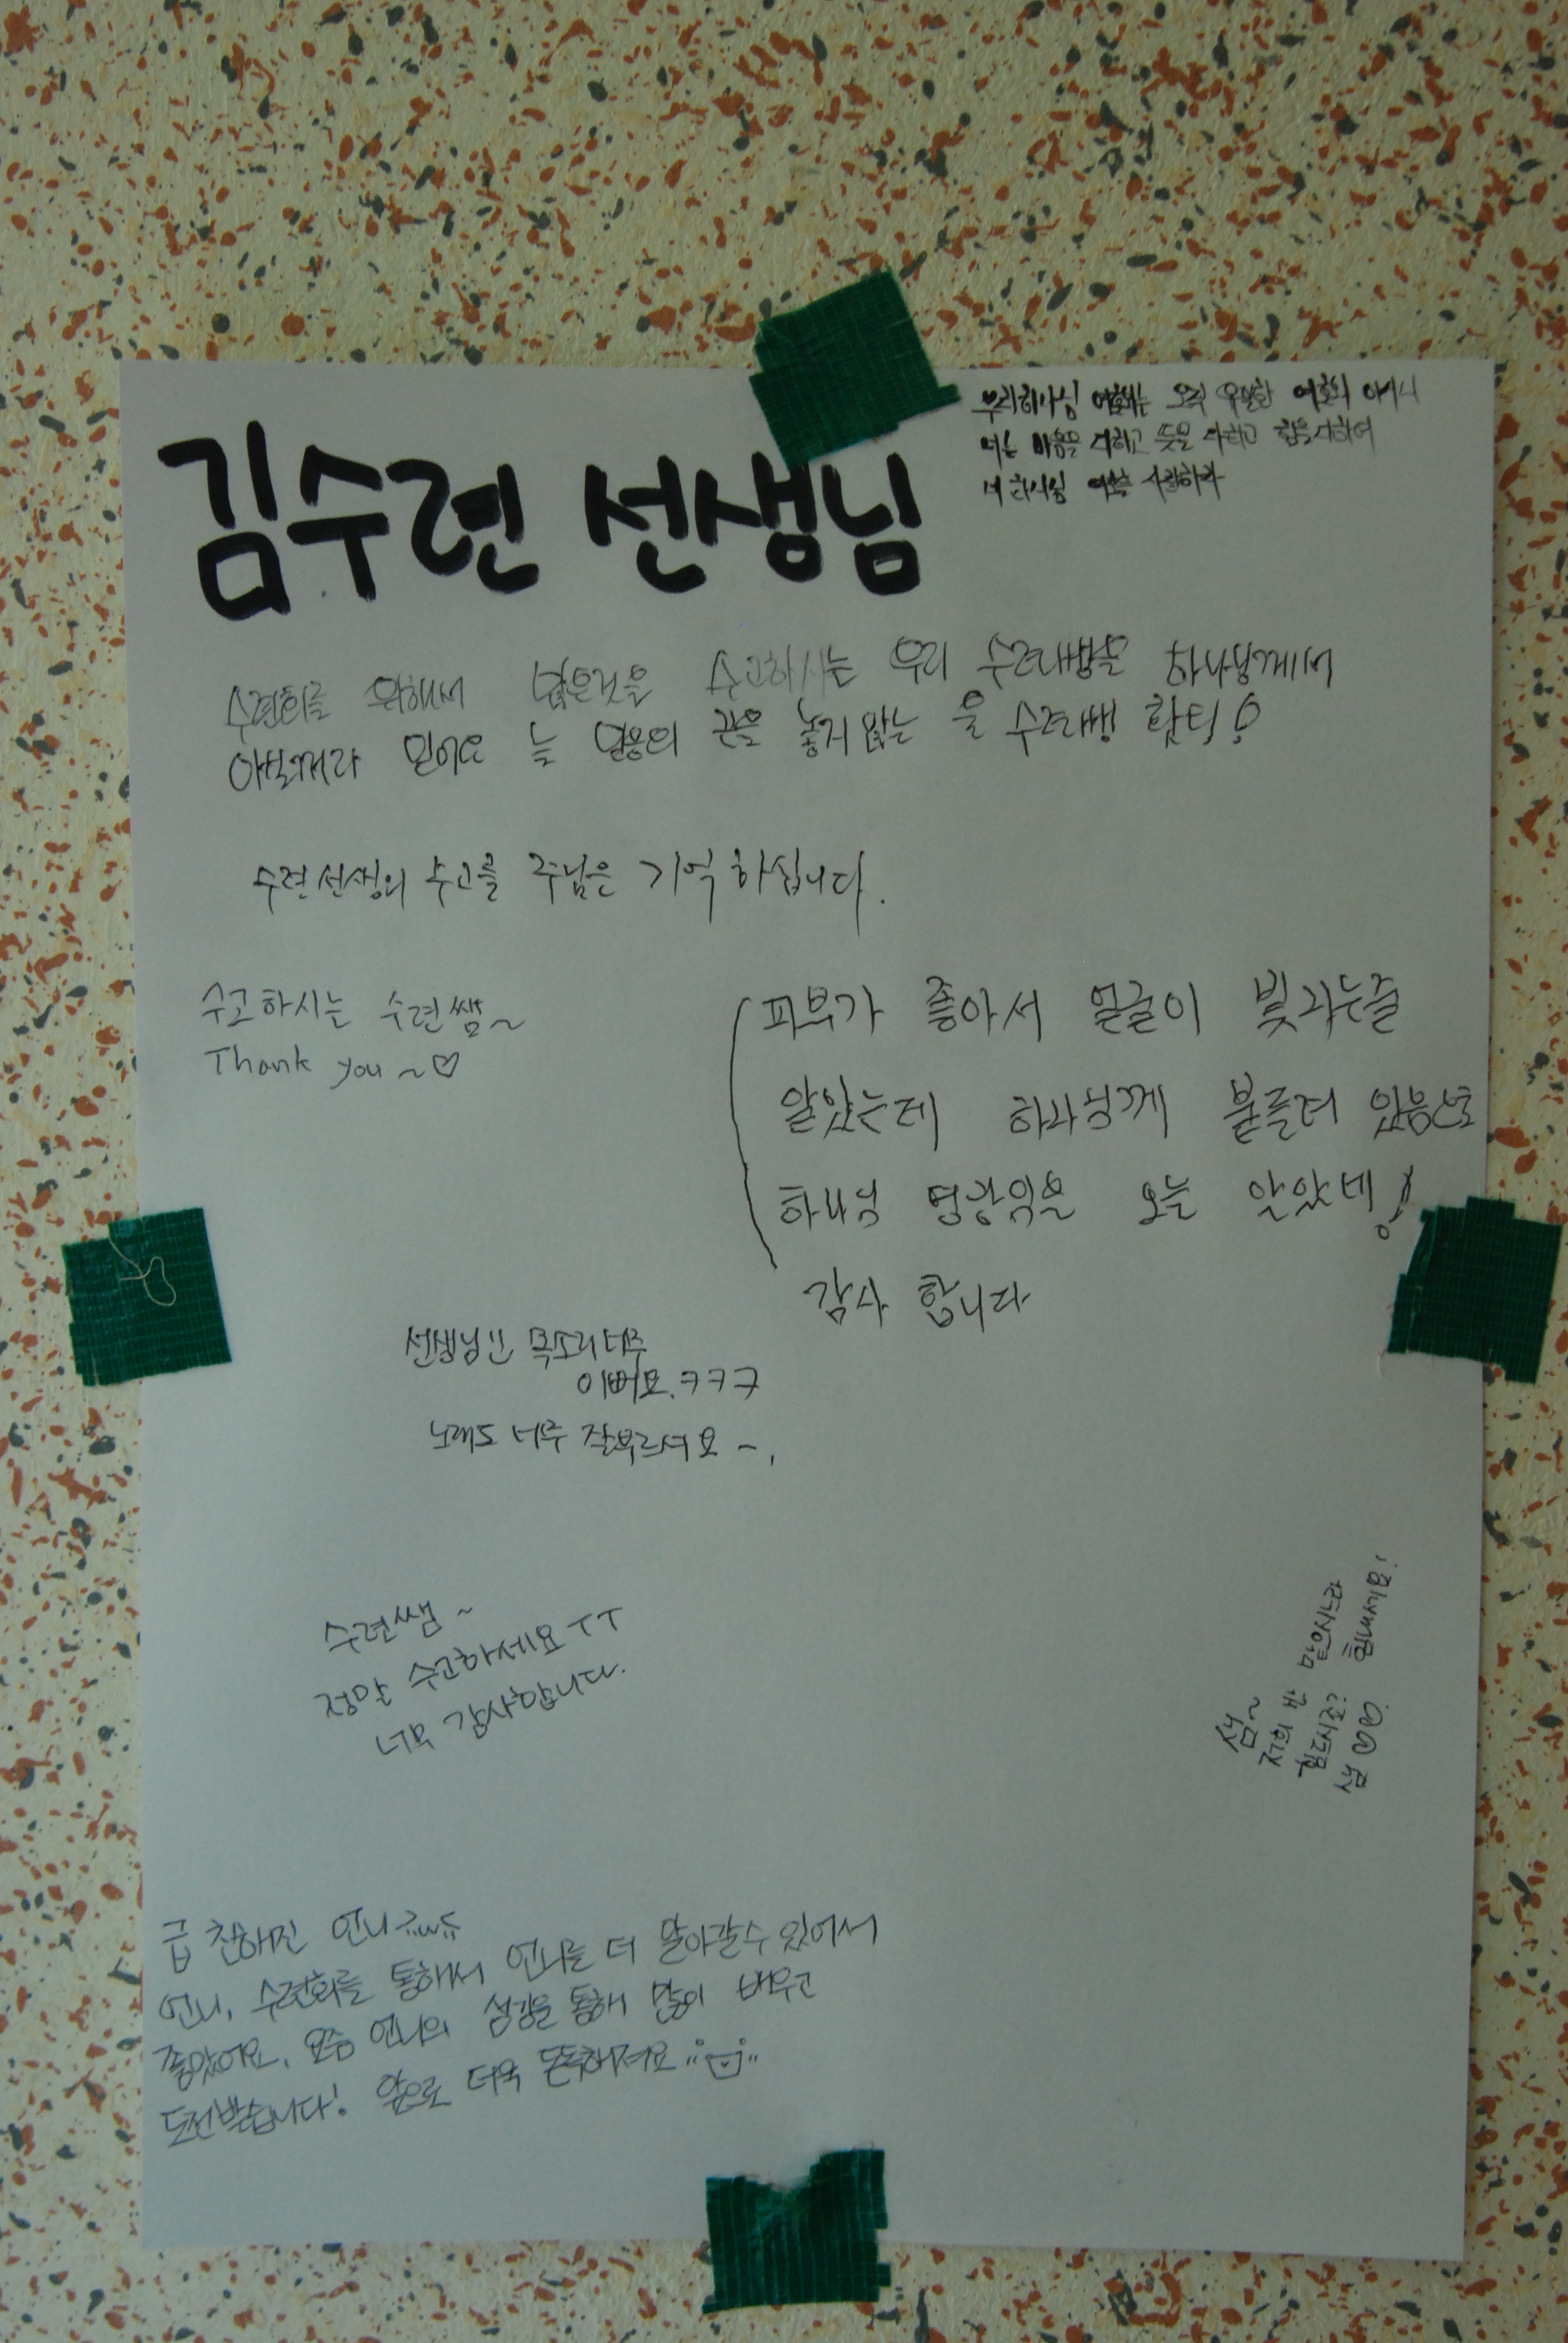 우리 하나님 여호와는 오직 유일한 여호와 이시니
너는 마음을 다하고 뜻을 다하고 힘을 다하여
네 하나님 여호와를 사랑하라
김수련 선생님
수련회를 위해서 많은것을 수고하시는 우리 수련쌤을 하나님께서
아실꺼라 믿어요 늘 웃음의 끈을 놓지않는 울 수련쌤 화팅!
수련선생의 수고를 주님은 기억하십니다.
수고하시는 수련쌤~
Thank you ~♡
피부가 좋아서 얼굴이 빛나는줄
알았는데 하나님께 붙들려 있음으로
하나님 영광임을 오늘 알았네!
감사 합니다
선생님!! 목소리너무
이뻐요.ㅋㅋㅋ
노래도 너무 잘부르셔요~,
수련쌤~
정말 수고하세요ㅜㅜ
너무 감사합니다.
쌤~
급 친해진 언니
언니, 수련회를 통해서 언니를 더 알아갈수 있어서
좋았어요. 요즘 언니의 섬김을 통해 많이 배우고
도전받습니다! 앞으로 더욱 돈독해져요